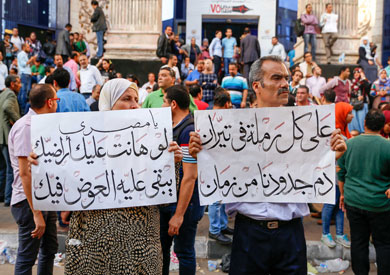 VO
على كل رملة في تيران
دم جدودنا من زمان
يا مصري
لو هانت عليك أراضيك
يبقى عليه العوض فيك